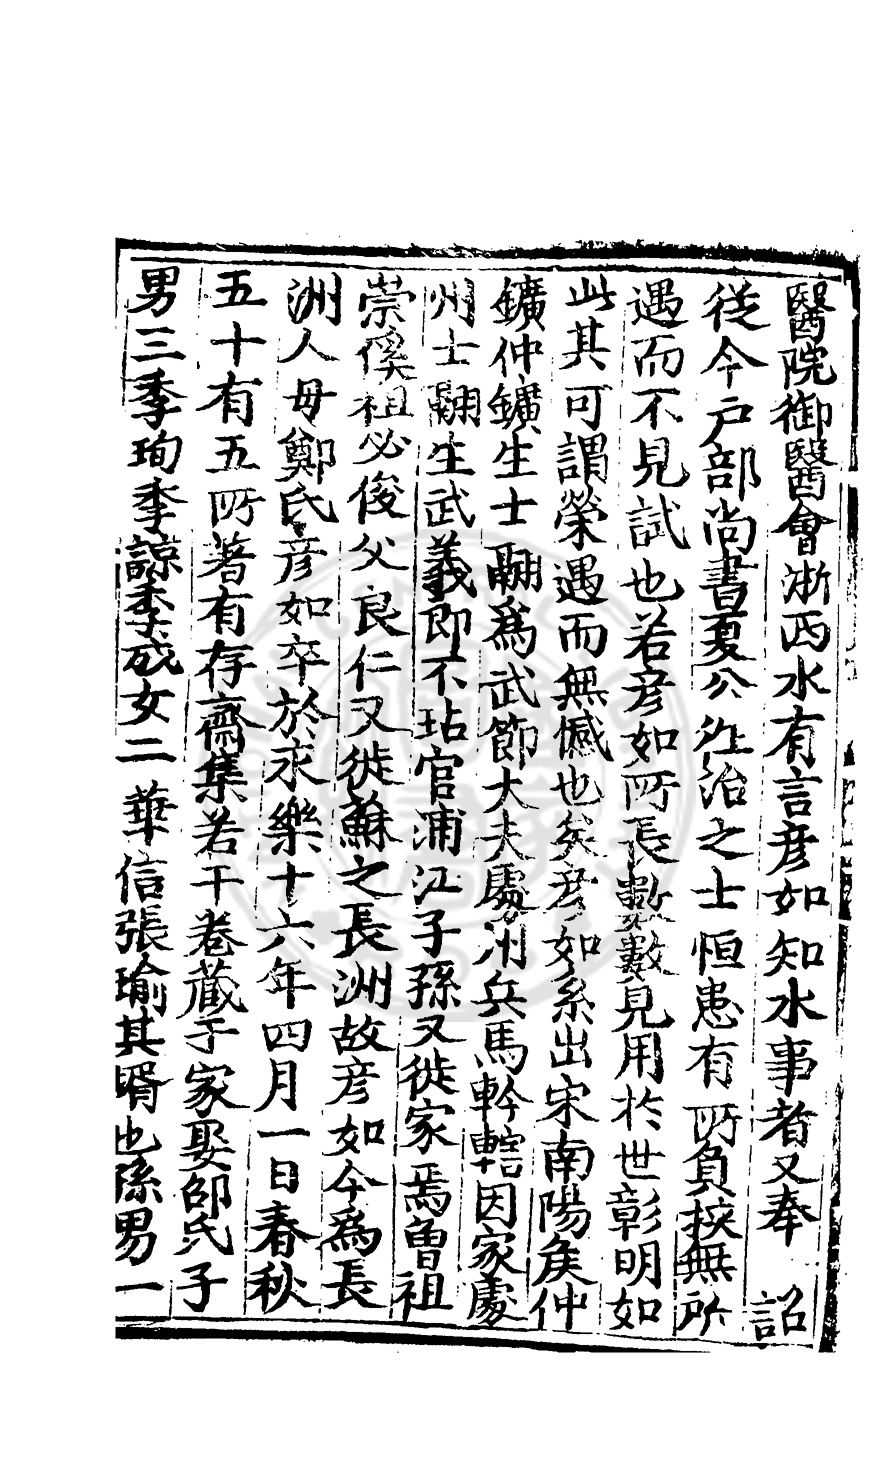 醫院御醫會浙西水有言彦如知水事者又奉　詔
從今户部尚書夏公往治之士恒患有所負挾無所
遇而不見試也若彦如所長數數見用於世彰明如
此其可謂榮遇而無憾也矣彦如系出宋南陽矦仲
鑛仲鑛生士翮爲武節大夫處州兵馬幹轄因家處
州士翮生武義郎不玷官浦江子孫又徙家焉曾祖
崇僕祖必俊父良仁又徙蘇之長洲故彦如今爲長
洲人母鄭氏彦如卒於永樂十六年四月一日春秋
五十有五所著有存齋集若干卷藏于家娶邵氏子
男三季珣季諒季成女二華信張瑜其壻也孫男一